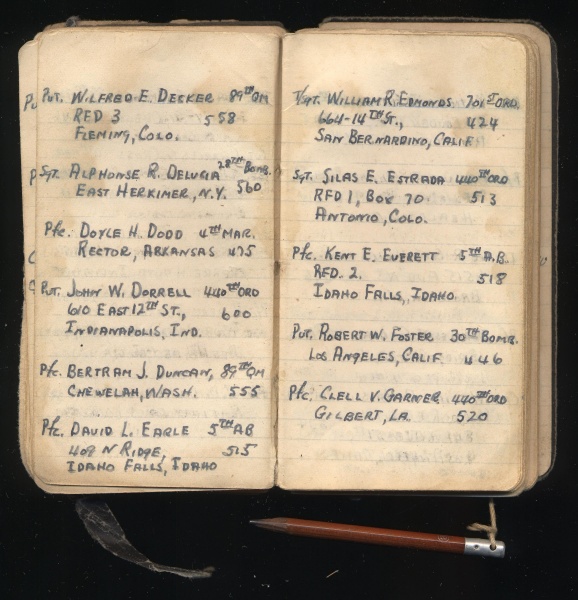 Pvt. WILFRED E. DECKER 89TH QM
RED 3 558
FLEMING, COLO.
Sgt. ALPHONSE R. DELUGIA 28TH BOMB.
EAST HERKIMER, N.Y. 560
Pfc. DOYLE H. DODD 4TH MAR.
RECTOR, ARKANSAS 475
Pvt. JOHN W. DORRELL 440TH ORD
610 EAST 12TH ST., 600
INDIANAPOLIS, IND.
Pfc. BERTRAM J. DUNCAN, 89TH QM
CHEWELAH, WASH. 555
Pfc. DAVID L. EARLE 5TH AB
409 N RIDGE, 515
IDAHO FALLS, IDAHO
T/Sgt. WILLIAM R. EDMONDS 701ST ORD.
664-14TH ST., 424
SAN BERNARDINO, CALIF.
Sgt. SILAS E. ESTRADA 440TH ORD
RFD 1, BOX 70 513
ANTONIO, COLO.
Pfc. KENT E. EVERETT 5TH A.B.
RED. 2. 518
IDAHO FALLS, IDAHO
Pvt. ROBERT W. FOSTER 30TH BOMB.
LOS ANGELES, CALIF. 446
Pfc. CLELL V. GARNER 440TH ORD
GILBERT, LA. 520